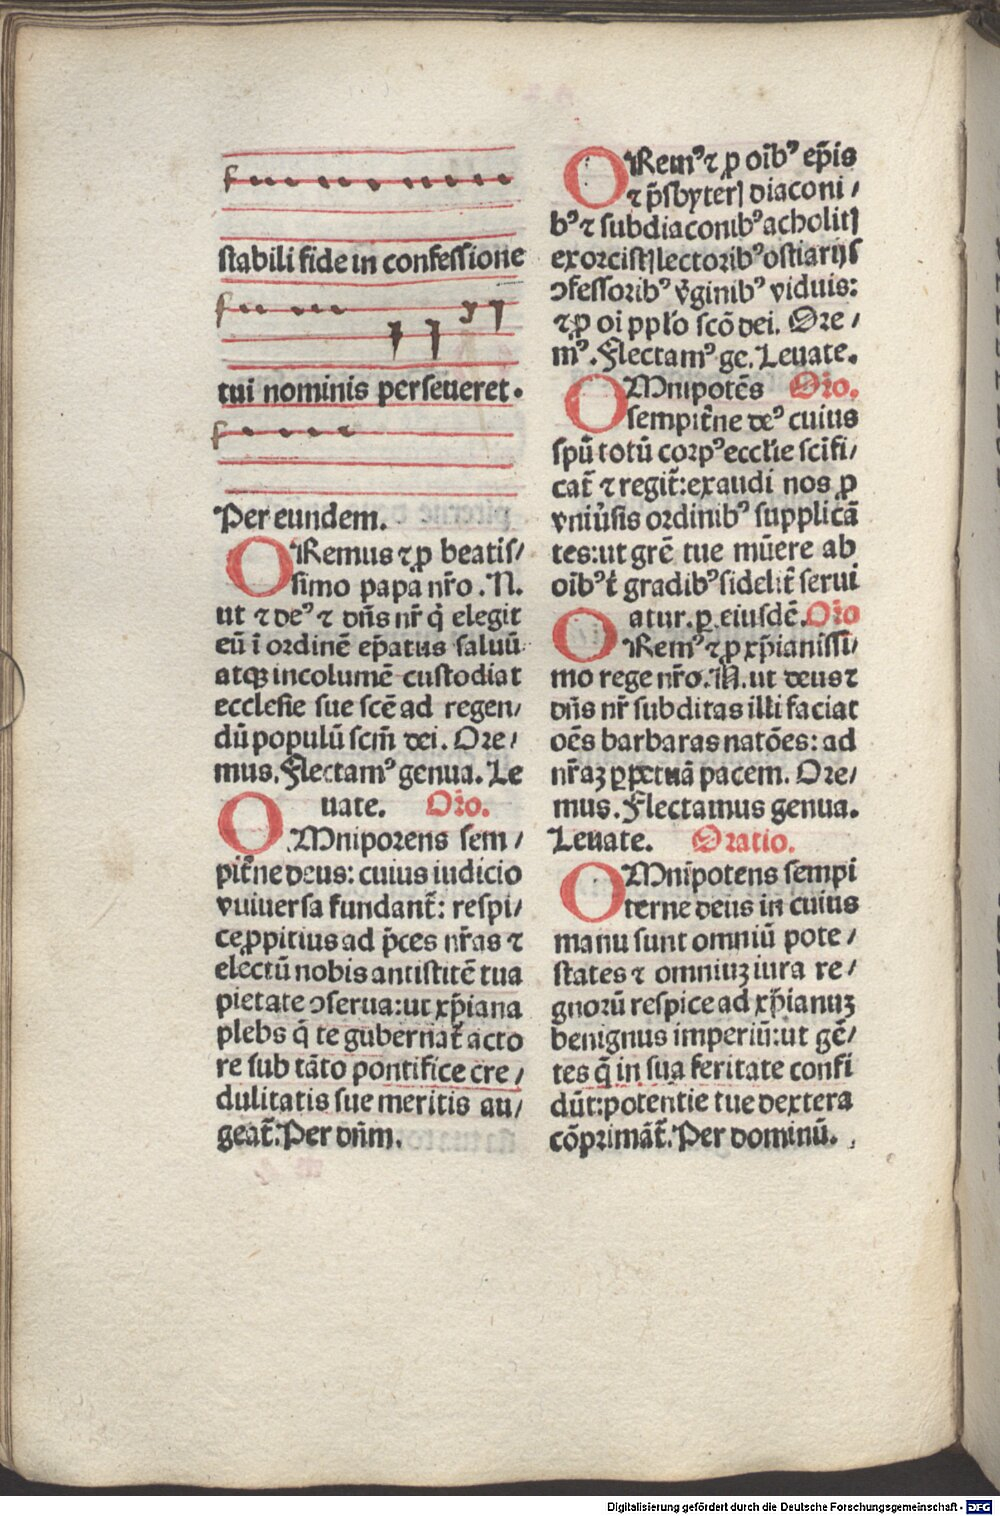 stabili fide in confessione
tui nominis perseueret.
Per eundem.
ORemus ⁊ ꝓ beatis/
simo papa nr̃o. N.
ut ⁊ deꝰ ⁊ dñs nr̃ q̇ elegit
eū ī ordinē ep̄atus saluū
atqꝫ incolumē custodiat
ecclesie sue scē ad regen/
dū populū scm̄ dei. Ore/
mus. Flectamꝰ genua. Le
uate. Or̃o.
OMniporens sem/
pit̃ne deus: cuius iudicio
vuiuersa fundant̃: respi/
ce ꝓpitius ad p̄ces nr̃as ⁊
electū nobis antistitē tua
pietate ↄserua: ut xp̄iana
plebs q̄ te gubernat̃ acto
re sub tāto pontifice cre/
dulitatis sue meritis au/
geat̃. Per dn̄m.
ORemꝰ ⁊ ꝓ oībꝰ ep̄is
⁊ p̄sbyterꝭ diaconi/
bꝰ ⁊ subdiaconibꝰ acholitꝭ
exorcistꝭ lectoribꝰ ostiarijs
ↄfessoribꝰ v̄ginibꝰ viduis:
⁊ ꝓ oi pplo scō dei. Ore/
mꝰ. Flectamꝰ ge. Leuate.
OMnipotēs Or̃o.
sempit̃ne deꝰ cuius
spū totū corpꝰ ecclie scīfi/
cat̃ ⁊ regit̃: exaudi nos ꝓ
vniu̇sis ordinibꝰ supplicā
tes: ut grē tue mūere ab
oībꝰ t̃ gradibꝰ fidelit̃ serui
atur. ꝑ. eiusdē. Or̃o
ORemꝰ ⁊ ꝓ xp̄ianissi/
mo rege nr̃o. N. ut deus ⁊
dñs nr̃ subditas illi faciat
oēs barbaras natōes: ad
nr̃aꝫ ꝑpetuā pacem. Ore/
mus. Flectamus genua.
Leuate. Oratio.
OMnipotens sempi
terne deus in cuius
manu sunt omniū pote/
states ⁊ omniuꝫ iura re/
gnorū respice ad xp̄ianuꝫ
benignus imperiū: ut gē/
tes q̄ in sua feritate confi
dūt: potentie tue dextera
cōprimāt̃. Per dominū.
Digitalisierung gefördert durch die Deutsche Forschungsgemeinschaft - DFG